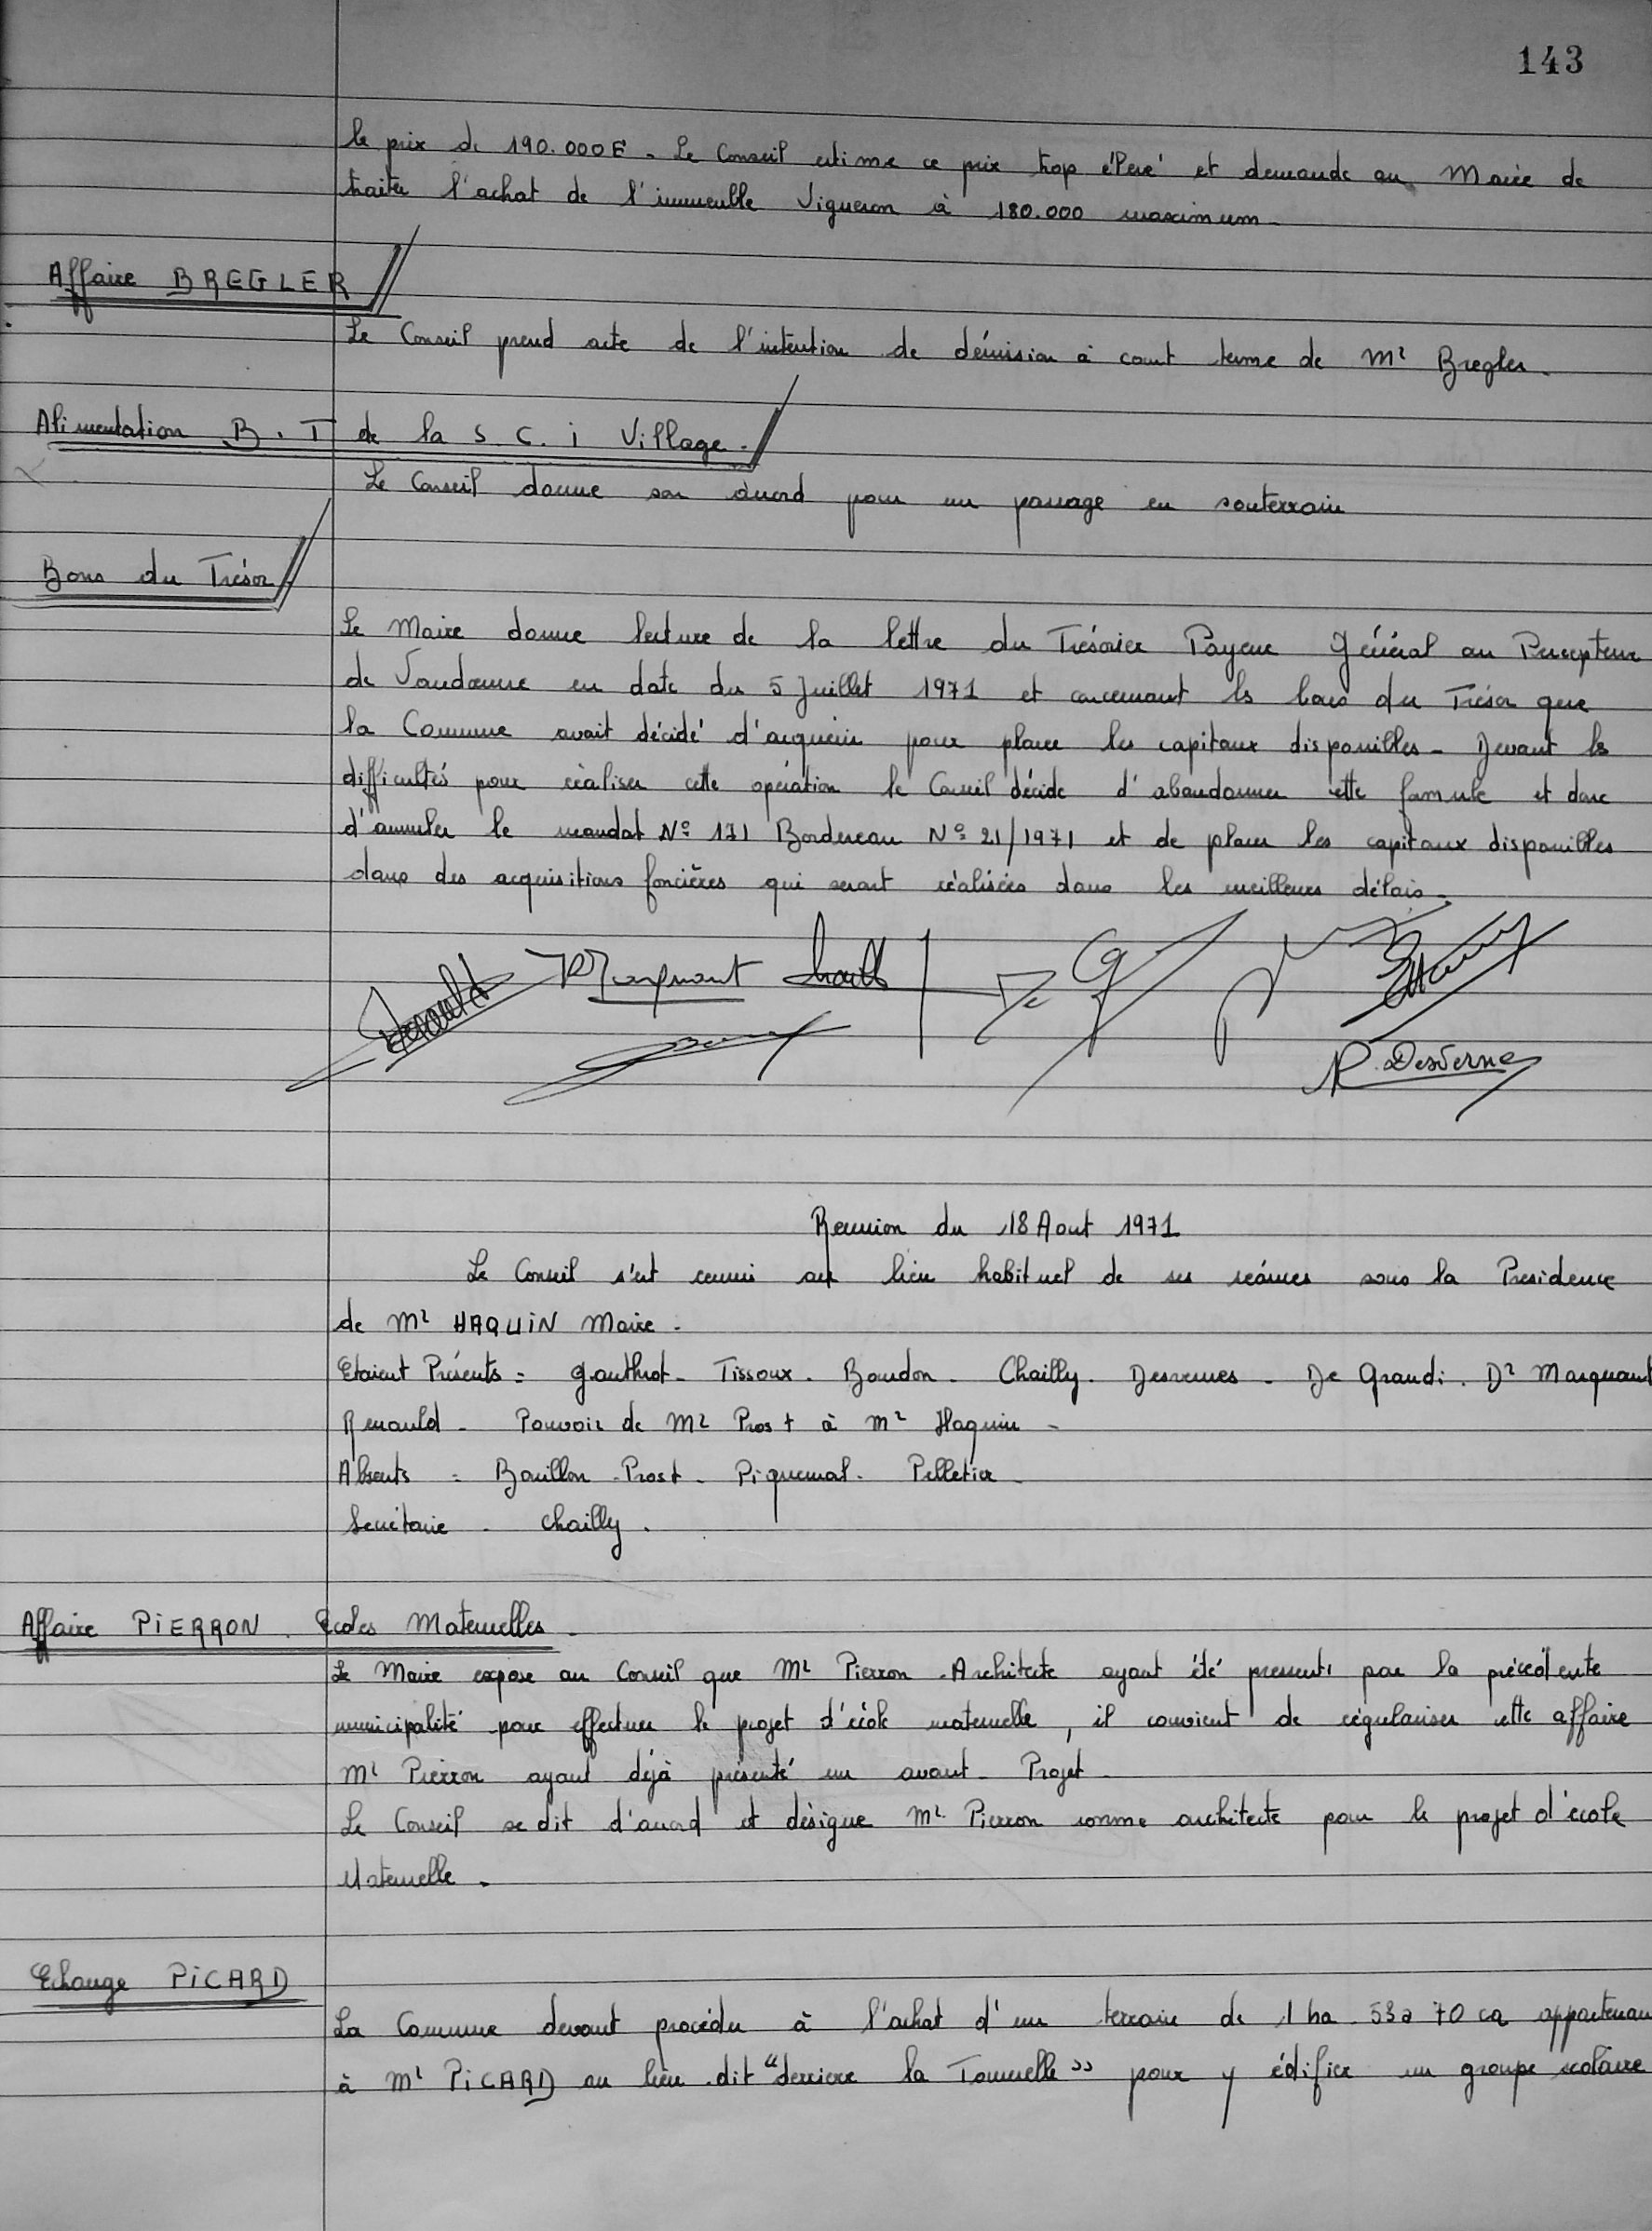 143
le prix de 190.000 F. Le Conseil estime ce prix trop élevé et demande au Maire de
traiter l'achat de l'immeuble Vigneron à 180.000 maximum.
Affaire BREGLER
Le Conseil prend acte de l'intention de démission à court terme de Mr Bregler.
Alimentation B.T de la S.C.i Village.
Le Conseil donne son accord pour un passage en souterrain
Bons du Trésor
Le Maire donne lecture de la lettre du Trésorier Payeur Général au Percepteur
de Vaudoeuvre en date du 5 Juillet 1971 et concernant les bons du Trésor que
la Commune avait décidé d'acquérir pour placer les capitaux disponibles. Devant les
difficultés pour réaliser cette opération le Conseil décide d'abandonner cette formule et donc
d'annuler le mandat N° 171 Bordereau N° 21/1971 et de placer les capitaux disponibles
dans des acquisitions foncières qui seront réalisées dans les meilleurs délais.
Renauld Marquant Chailly
R. Desvernes
Reunion du 18 Aout 1971
Le Conseil s'est reuni au lieu habituel de ses séances sous la Presidence
de Mr HAQUiN Maire.
Etaient Présents = Gauthrot. Tissoux. Boudon. Chailly. Desvernes. De Grandi. Dr Marquant
Renauld. Pouvoir de Mr Prost à Mr Haquin -
Absents = Bouillon. Prost. Piquemal. Pelletier.
Secrétaire. Chailly.
Affaire PiERRON. Ecoles Maternelles.
Le Maire expose au Conseil que Mr Pierron. Architecte ayant été pressenti par la précédente
municipalité pour effectuer le projet d'école maternelle, il convient de régulariser cette affaire
Mr Pierron ayant déjà présenté un avant-Projet.
Le Conseil se dit d'accord et désigne Mr. Pierron comme architecte pour le projet d'école
Maternelle.
Echange PiCARD
La Commune devant procéder à l'achat d'un terrain de 1 ha 53a 70 ca appartenan
à Mr PiCARD au lieu-dit "derriere la Tournelle" pour y édifier un groupe scolaire